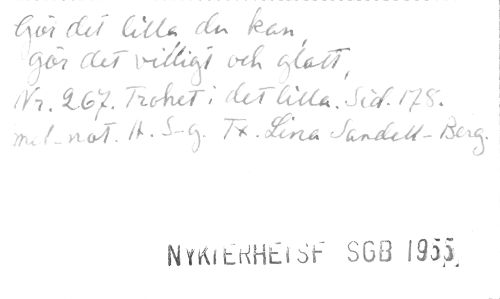 Gör det lilla du kan,
gör det villigt och glatt,
Nr. 267. Trohet i det lilla. Sid. 178.
mel-not. H. S-g. Tx. Lina Sandell-Berg.
NYKTERHETSF SGB 1955.